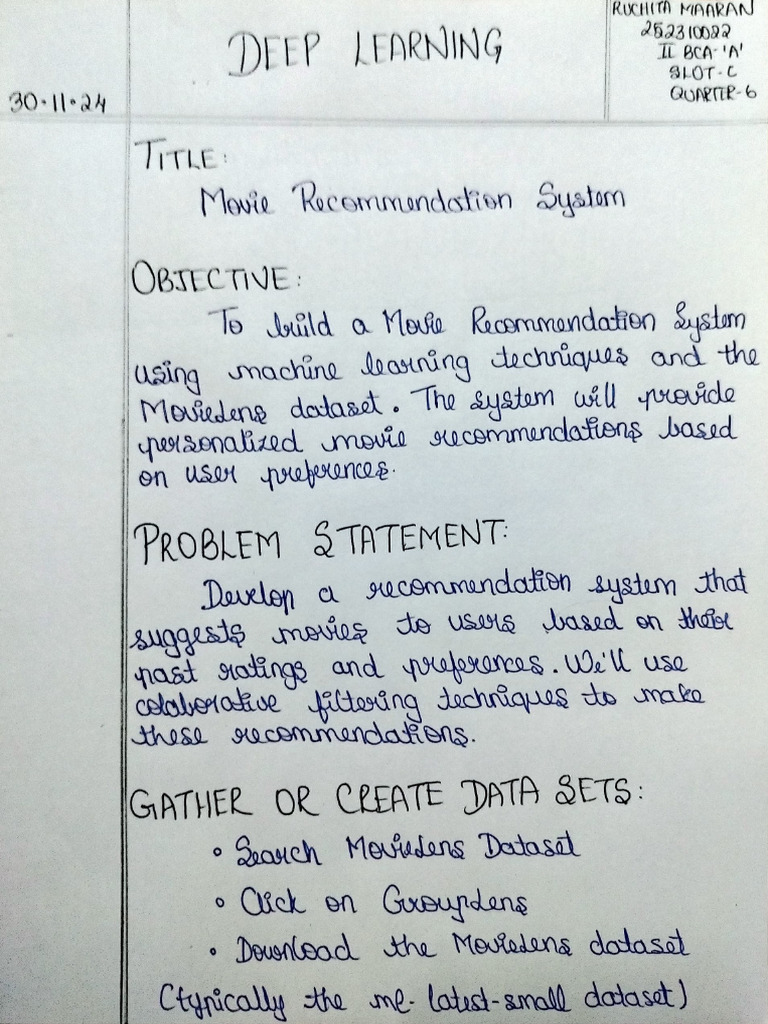 DEEP LEARNING
RUCHITA MAARAN
252310022
II BCA-'A'
SLOT-C
QUARTER-6
30.11.24
TITLE:
Movie Recommendation System
OBJECTIVE:
To build a Movie Recommendation System
using machine learning techniques and the
MovieLens dataset. The system will provide
personalized movie recommendations based
on user preferences.
PROBLEM STATEMENT:
Develop a recommendation system that
suggests movies to users based on their
past ratings and preferences. We'll use
colaborative filtering techniques to make
these recommendations.
GATHER OR CREATE DATA SETS:
• Search MovieLens Dataset
• Click on GroupLens
• Download the MovieLens dataset
(typically the ml-latest-small dataset)